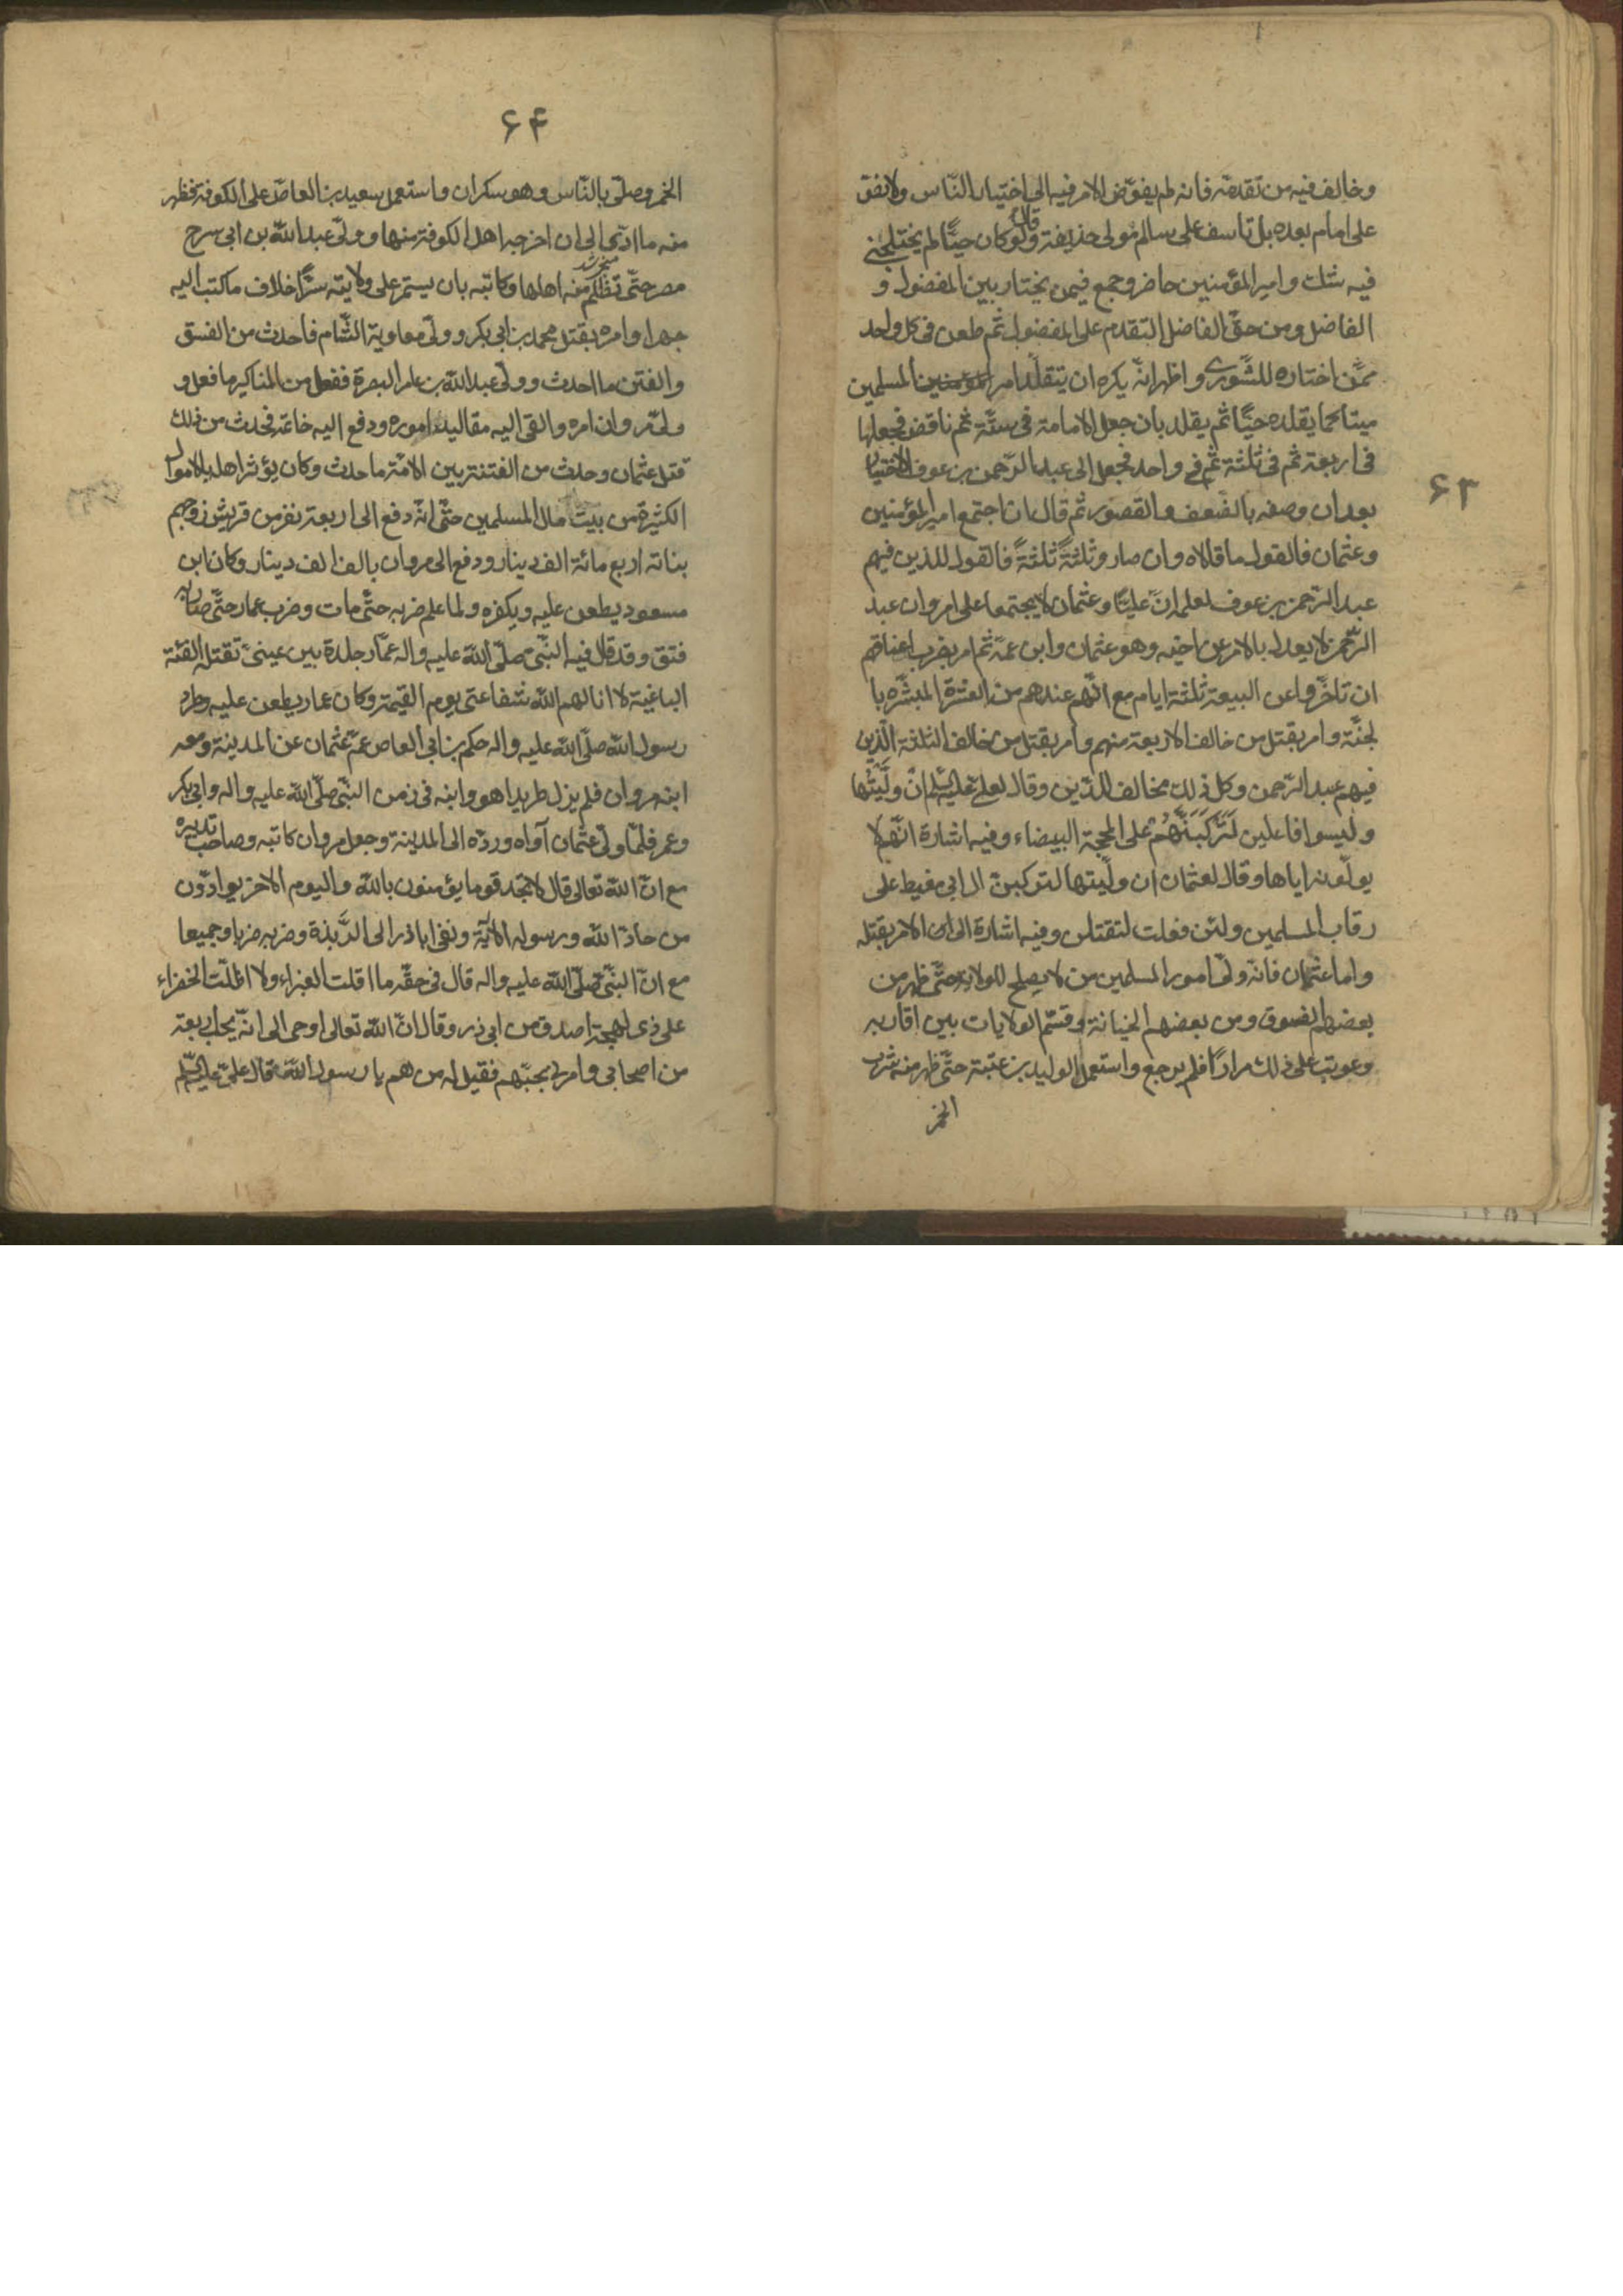 وخالف فيه من تقدمه فانه لم يفوّض الامر فيه الى اختيار النّاس ولا نصّ
على امام بعده بل تاسف على سالم مولى حذيفة وقال لو كان حيًّا لم يختلجني
فيه شك وامير المؤمنين حاضر وجمع فيمن يختار بين المفضول و
الفاضل ومن حقّ الفاضل التقدم على المفضول ثم طعن في كل واحد
ممّن اختاره للشّورى واظهر انّه يكره ان يتقلّد امر المسلمين
ميتا كما يقلده حيًّا ثم يقلد بان جعل الامامة في ستّة ثم ناقض فجعلها
في اربعة ثم في ثلثة ثم في واحد فجعل الى عبد الرّحمن بن عوف الاختيار
بعد ان وصفه بالضّعف والقصور ثم قال ان اجتمع امير المؤمنين
وعثمان فالقول ما قالاه وان صاروثلثةً ثلثةً فالقول للذين فيهم
عبد الرّحمن بن عوف لعلمه انّ عليًّا وعثمان لا يجتمعا على امر وان عبد
الرّحمن لا يعدل بالامر عن اخيه وهو عثمان وابن عمّه ثم امر بضرب اعناقهم
ان تاخّروا عن البيعة ثلثة ايام مع انّهم عندهم من العشرة المبشّره با
لجنّة وامر بقتل من خالف الاربعة منهم وامر بقتل من خالف الثلثة الّذين
فيهم عبد الرّحمن وكل ذلك مخالف للدّين وقال لعلي عليه السّلم ان وَلَّيتُها
وليسوا فاعلين لَتَركَبَنَّهُم على المحجة البيضاء وفيه اشارة انّهم لا
يولّونه اياها وقال لعثمان ان ولّيتها لتركبن ال ابي مغيط على
رقاب المسلمين ولئن فعلت لتقتلن وفيه اشارة الى الامر بقتله
واما عثمان فانّه ولّى امور المسلمين من لا يصلح للولاية حتّى ظهر من
بعضهم الفسوق ومن بعضهم الخيانة وقسّم الولايات بين اقاربه
وعوتب على ذلك مرارًا فلم يرجع واستعمل الوليد بن عتبة حتّى ظهر منه شرب
الخمر
۶۳
۶۴
الخمر وصلّى بالنّاس وهو سكران واستعمل سعيد بن العاص على الكوفة فظهر
منه ما ادّى الى ان اخرجه اهل الكوفة منها وولّى عبد الله بن ابي سرح
مصر حتّى تظلّم منه اهلها وكاتبه بان يستمر على ولايته سرًّا خلاف ما كتب اليه
جهرا وامره بقتل محمد بن ابي بكر وولّى معاوية الشّام فاحدث من الفسق
والفتن ما احدث وولّى عبد الله بن عامر البصرة ففعل من المناكير ما فعل و
ولّى مروان امره والقى اليه مقاليد اموره ودفع اليه خاتمه فحدث من ذلك
قتل عثمان وحدث من الفتنة بين الامّة ما حدث وكان يؤثر اهله بالاموال
الكثيرة من بيت مال المسلمين حتّى انّه دفع الى اربعة نفر من قريش زوجهم
بناته اربع مائة الف دينار ودفع الى مروان بالف الف دينار وكان ابن
مسعود يطعن عليه ويكفره ولما علم ضربه حتّى مات وضرب عمار حتّى صار به
فتق وقد قال فيه النّبي صلّى الله عليه واله عمّار جلدة بين عينيّ تقتله الفئة
الباغية لا انالهم الله شفاعتي يوم القيمة وكان عمار يطعن عليه وطرد
رسول الله صلّى الله عليه واله حكم بن ابي العاص عمّ عثمان عن المدينة ومعه
ابنه مروان فلم يزل طريدا هو وابنه في زمن النّبي صلّى الله عليه واله وابي بكر
وعمر فلمّا ولّى عثمان آواه وردّه الى المدينة وجعل مروان كاتبه وصاحب تدبيره
مع انّ الله تعالى قال لا تجد قوما يؤمنون بالله واليوم الاخر يوادّون
من حادّ الله ورسوله الآية ونفى اباذر الى الرَّبذة وضربه ضربا وجميعا
مع انّ النبّي صلّى الله عليه واله قال في حقّه ما اقلت الغبراء ولا اظلّت الخضراء
على ذى لهجة اصدق من ابي ذر وقال انّ الله تعالى اوحى الى انّه يحبّ اربعة
من اصحابي وامرني بحبّهم فقيل له من هم يا رسول الله قال علي عليه السّلم